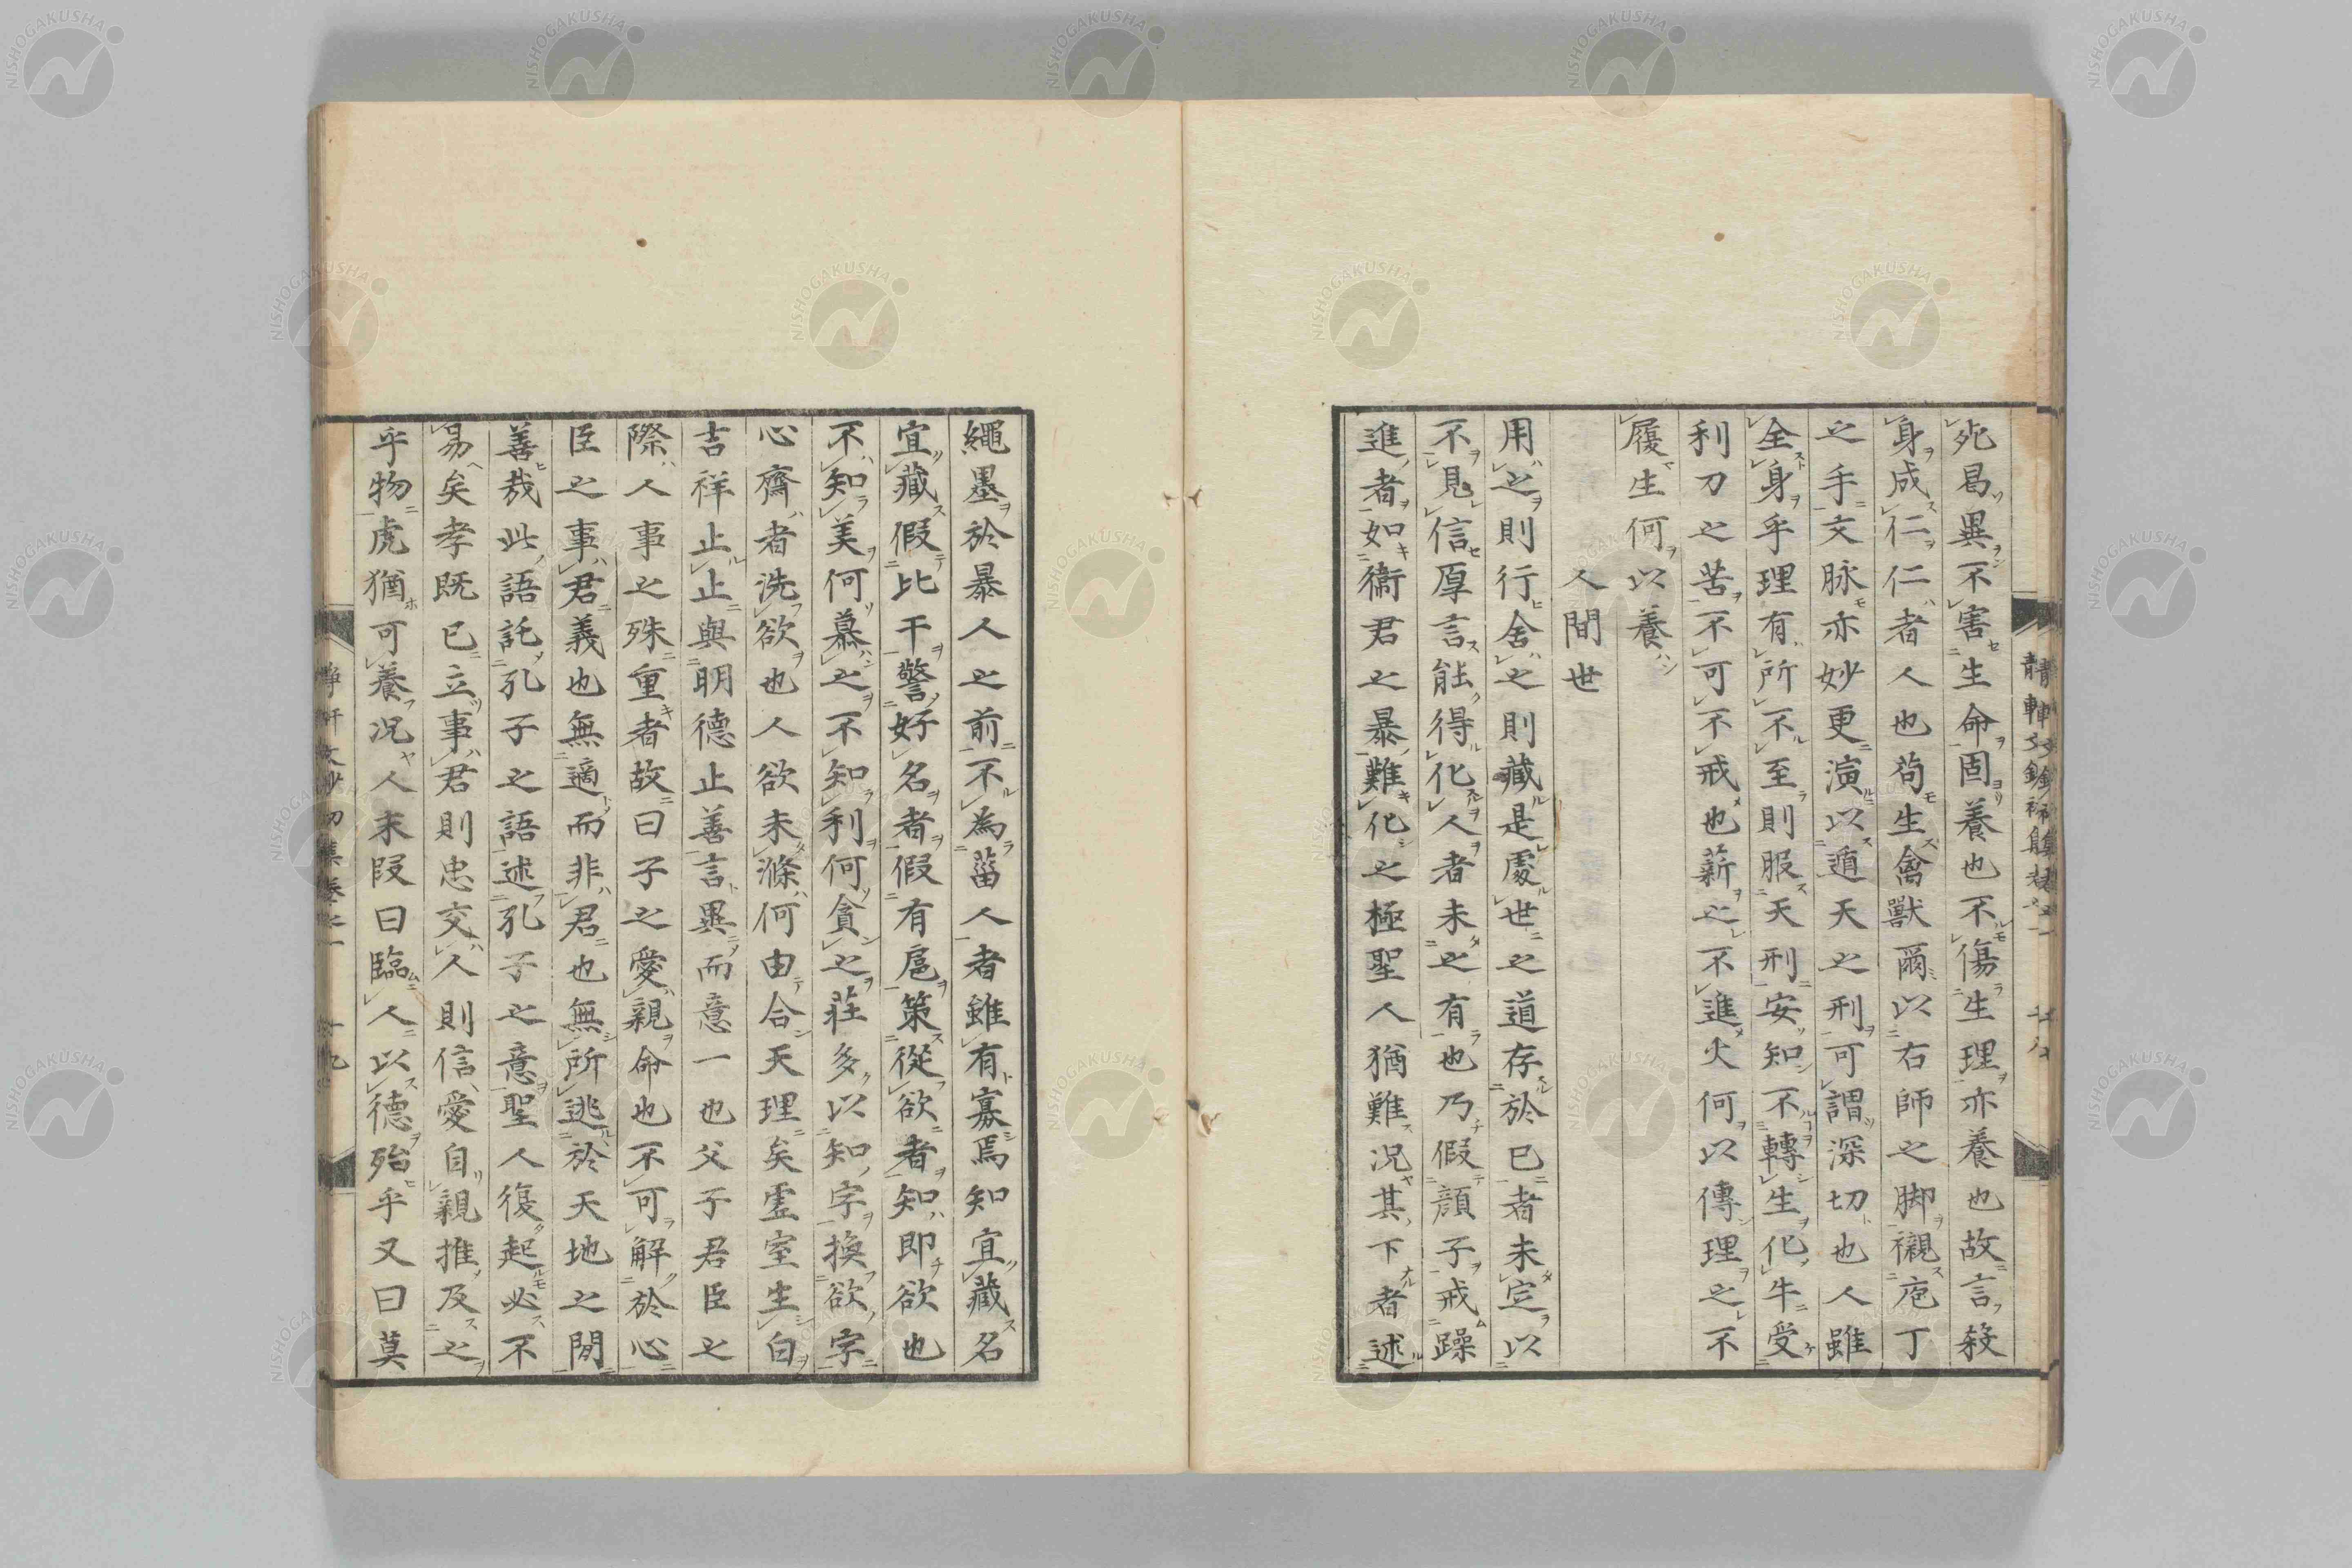 死曷異不害生命固養也不傷生理亦養也故言殺
身成仁仁者人也苟生禽獸爾以右師之脚襯庖丁
之手文脉亦妙更演以遁天之刑可謂深切也人雖
全身乎理有所不至則服天刑安知不轉生化牛受
利刀之苦不可不戒也薪之不進火何以傳理之不
履生何以養
人間世
用之則行舍之則藏是處世之道存於已者未定以
不見信厚言能得化人者未之有也乃假顔子戒躁
進者如衞君之暴難化之極聖人猶難况其下者述
繩墨於暴人之前不為菑人者雖有寡焉知宜藏名
宜藏假比干警好名者假有扈策從欲者知即欲也
不知美何慕之不知利何貪之莊多以知字換欲字
心齋者洗欲也人欲未滌何由合天理矣虛室生白
吉祥止止止與明德止善言異而意一也父子君臣之
際人事之殊重者故曰子之愛親命也不可解於心
臣之事君義也無適而非君也無所逃於天地之間
善哉此語託孔子之語述孔子之意聖人復起必不
易矣孝既已立事君則忠交人則信愛自親推及之
乎物虎猶可養况人未叚曰臨人以德殆乎又曰莫
NISHOGAKUSHA